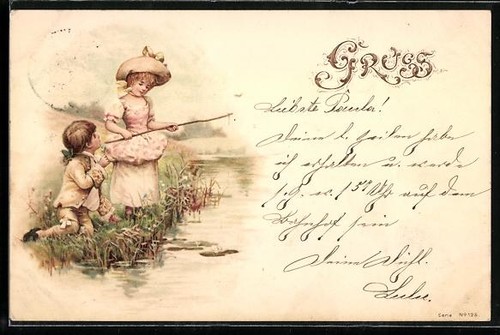 Gruss
Liebste Paula!
Deine l. Zeilen habe
ich erhalten u. werde
Uhr auf dem
Bahnhof sein
Deine
Serie No 133